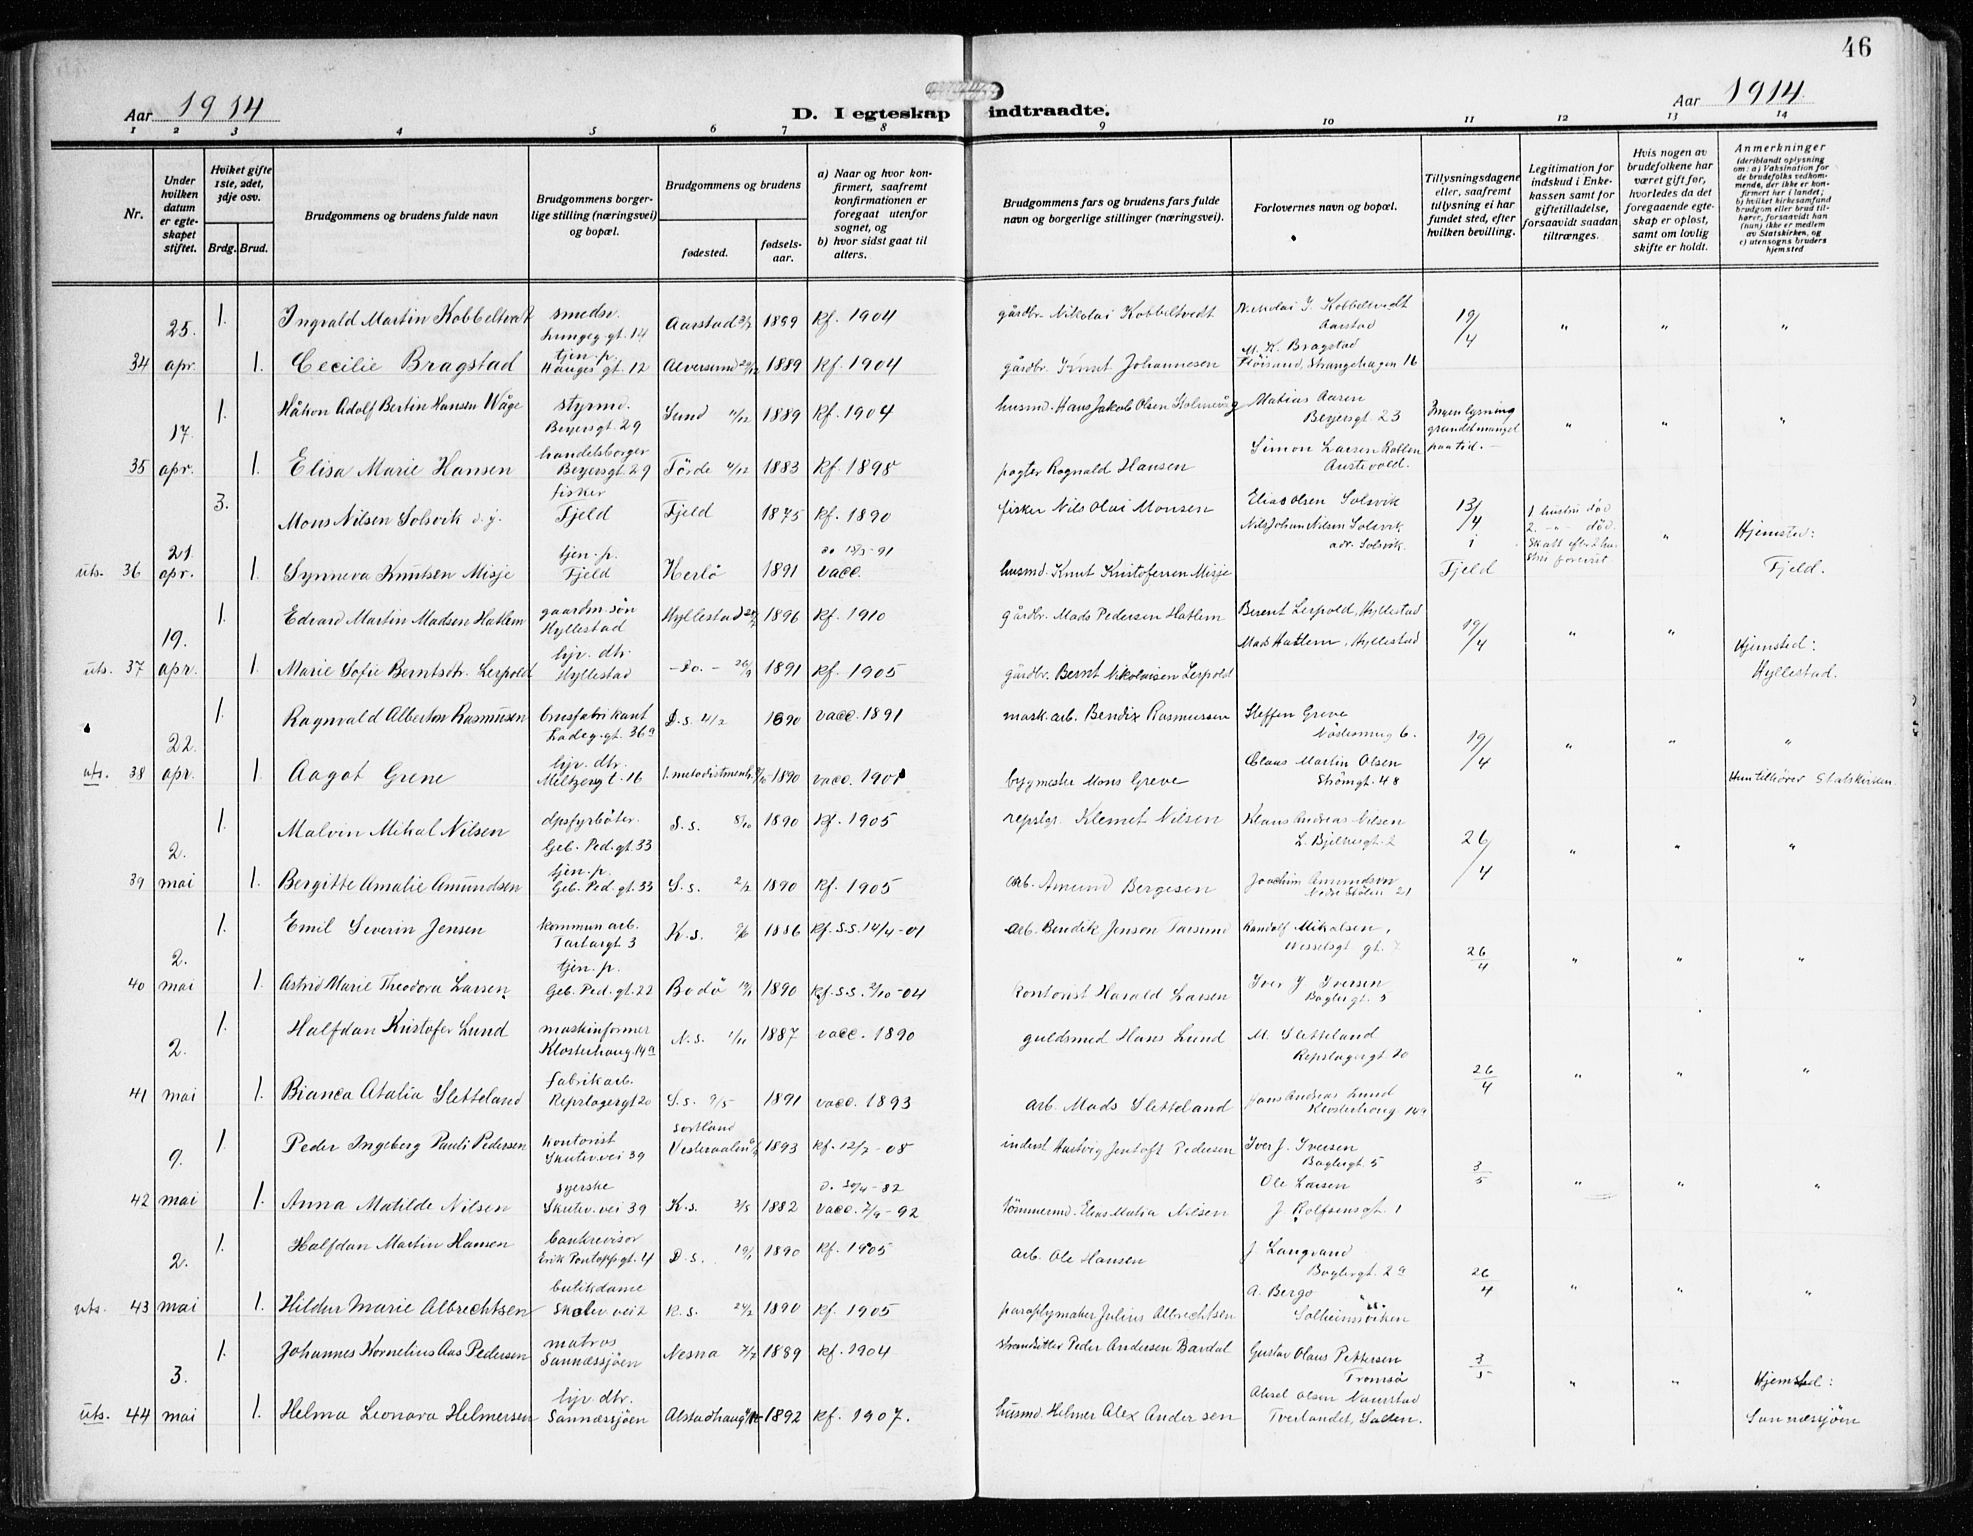 46
Aar 1914
D. I egteskap indtraadte.
Aar 1914
1 2 3 4 5 6 7 8 9 10 11 12 13 14
Nr.
Under hvilken datum er egteskapet stiftet.
Hviket gifte 1ste, 2det, 3dje osv.
Brdg. Brud.
Brudgommens og brudens fulde navn
Brudgommens borgerlige stilling (næringsvei) og bopæl.
Brudgommens og brudens
fødested.
fødselsaar.
a) Naar og hvor konfirmert, saafremt konfirmationen er foregaat utenfor sognet, og
b) hvor sidst gaat til alters.
Brudgommens fars og brudens fars fulde navn og borgerlige stillinger (næringsvei).
Forlovernes navn og bopæl.
Tillysningsdagene eller, saafremt tillysning ei har fundet sted, efter hvilken bevilling.
Legitimation for indskud i Enkekassen samt for giftetilladelse, forsaavidt saadan tiltrænges.
Hvis nogen av brudefolkene har været gift før, hvorledes da det foregaaende egteskap er opløst, samt om lovlig skifte er holdt.
Anmerkninger
(deriblandt oplysning om: a) Vaksination for de brudefolks vedkommende, der ikke er konfirmert har i landet; b) hvilket kirkesamfund brudgom eller brud tilhører, forsaavidt han (hun) ikke er medlem av Statskirken, og c) utensogns bruders hjemsted
25. 1. Ingvald Martin Kobbeltvat smedsv. Lungeg. gt. 14 Aarstad 1889 kf. 1904 gårdbr. Nikolai Kobbeltvedt Nikolai J. Kobbeltvedt Aarstad 19/4 " " "
34 apr. 1. Cecilie Bragstad tjen. p. Hauges gt. 12 Alversund 1889 kf. 1904 gårdbr. Knut Johannesen M. K. Bragstad Fløisand, Strangehagen 16
17. 1. Håkon Adolf Bertin Hansen Wåge styrmd. Beyersgt. 29 Sund 11/12 1889 kf. 1904 husmd. Hans Jakob Olsen Kolmevåg Matias Aasen Beyersgt 23 Ingen lysning grundet mangel paa tid. " " "
35 apr. 1. Elisa Marie Hansen handelsborger Beyersgt 29 Førde 4/12 1883 kf. 1898 pagter Rognald Hansen Simon Larsen Austevold.
21. 3. Mons Nilsen Solsvik d. y. fisker Fjeld Fjeld 1875 kf. 1890 fisker Nils Olai Monsen Elias Olsen Solsvik Nils Johan Nilsen Solsvik adr. Solsvik. 13/4 i 1 hustru død 2. -"- død. Skatt efter 2 hustru forevist. " Hjemsted:
uts. 36 apr. 1. Synneva Knutsen Misje tjen. p. Fjeld Herlø 1891 do 13/3-91 vacc. husmd. Knut Kristofersen Misje Fjeld Fjeld.
19. 1. Edvard Martin Madsen Hatlem gaardm. søn Hyllestad Hyllestad 1896 kf. 1910 gårdbr. Mads Pedersen Hatlem Berent Lerpold, Hyllestad 19/4 " " Hjemsted:
uts. 37 apr. 1. Marie Sofie Berntsdtr. Lerpold hjv. dtr. Hyllestad - Do. - 26/9 1891 kf. 1905 gårdbr. Bernt Nikolaisen Lerpold Mads Hatlem, Hyllestad Hyllestad.
22. 1. Ragnvald Alberton Rasmusen brusfabrikant Ladeg. gt. 36a D.s. 4/2 1890 vacc. 1891 mask. arb. Bendix Rasmussen Steffen Greve 6. 19/4 " " "
uts. 38 apr. 1. Aagot Grene hjv. dtr. Meltzersgt. 16 1. metodistmenh. 1890 vacc. 1901 bygmester Mons Greve Claus Martin Olsen Strømgt. 48 Hun tilhører Statskirken
2. 1. Malvin Mikal Nilsen dpsfyrbøter. Geb. Ped. gt. 33 S. s. 8/10 1890 kf. 1905 repslgr. Klemet Nilsen Klaus Andreas Nilsen L. Bjelkesgt. 2 26/4 " " "
39 mai 1. Bergitte Amalie Amundsen tjen. p. Geb. Ped. gt. 33 S. s. 2/2 1890 kf. 1905 arb. Amund Bergesen Joachim Amundsen Nedre Stølen 21
2. 1. Emil Severin Jensen kommun arb. Tartargt 3 K. s. 1886 kf. S.S. 14/4-01 arb. Bendik Jenson Randolf Mikalsen, Wesselsgt gt. 7 26/4 " " "
40 mai 1. Astrid Marie Theodora Larsen tjen. p. Geb. Ped. gt. 22 Bodø 1890 kf. S.S. 2/10-04 kontorist Harald Larsen Iver J. Iversen Baglergt. 5
2. 1. Halfdan Kristofer Lund maskinformer Klosterhaug. 14a N. s. 1/11 1887 vacc. 1890 guldsmed Hans Lund M. Sletteland Repslagergt. 20 26/4 " " "
41 mai 1. Bianca Atalia Sletteland fabrikarb. Repslagergt 20 S. s. 9/5 1891 vacc. 1893 arb. Mads Sletteland Hans Andreas Lund Klosterhaug 14a
9. 1. Peder Ingeberg Pauli Pedersen kontorist Skutev. vei 39 Sortland Vesteraalen 1893 kf. 12/7-08 inderst Hartvig Jentoft Pedersen Iver J. Iversen Baglergt. 5 3/5 " " "
42 mai 1. Anna Matilde Nilsen syerske Skutev. vei 39 K. s. 3/3 1882 d. 30/4-82 vacc. 7/9-92 tømmermd. Elias Matia Nilsen Ole Larsen J. Rolfsensgt. 1
2. 1. Halfdan Martin Hansen bankrevisor Erik Pontoppgt. 4 D. s. 19/1 1890 kf. 1905 arb. Ole Hansen J. Langsand Baglergt. 2a 26/4 " " "
uts. 43 mai 1. Hildur Marie Albrechtsen butikdame Skolev. vei 2 K. s. 24/2 1890 kf. 1905 paraplymaker Julius Albrechtsen A. Bergo Solheimsviken
3. 1. Johannes Kornelius Aas Pedersen matros Sannæssjøen Nesna 7/7 1889 kf. 1904 strandsitter Peder Andersen Bardal Gustav Olaus Pettersen Tromsø 3/5 " " Hjemsted:
uts. 44 mai 1. Helma Leonora Helmersen hjv. dtr. Sannæssjøen Alstadhaug 1892 kf. 1907. husmd Helmer Alex Andersen Aksel Olsen Naurstad Tverlandet, Salten. Sannæssjøen